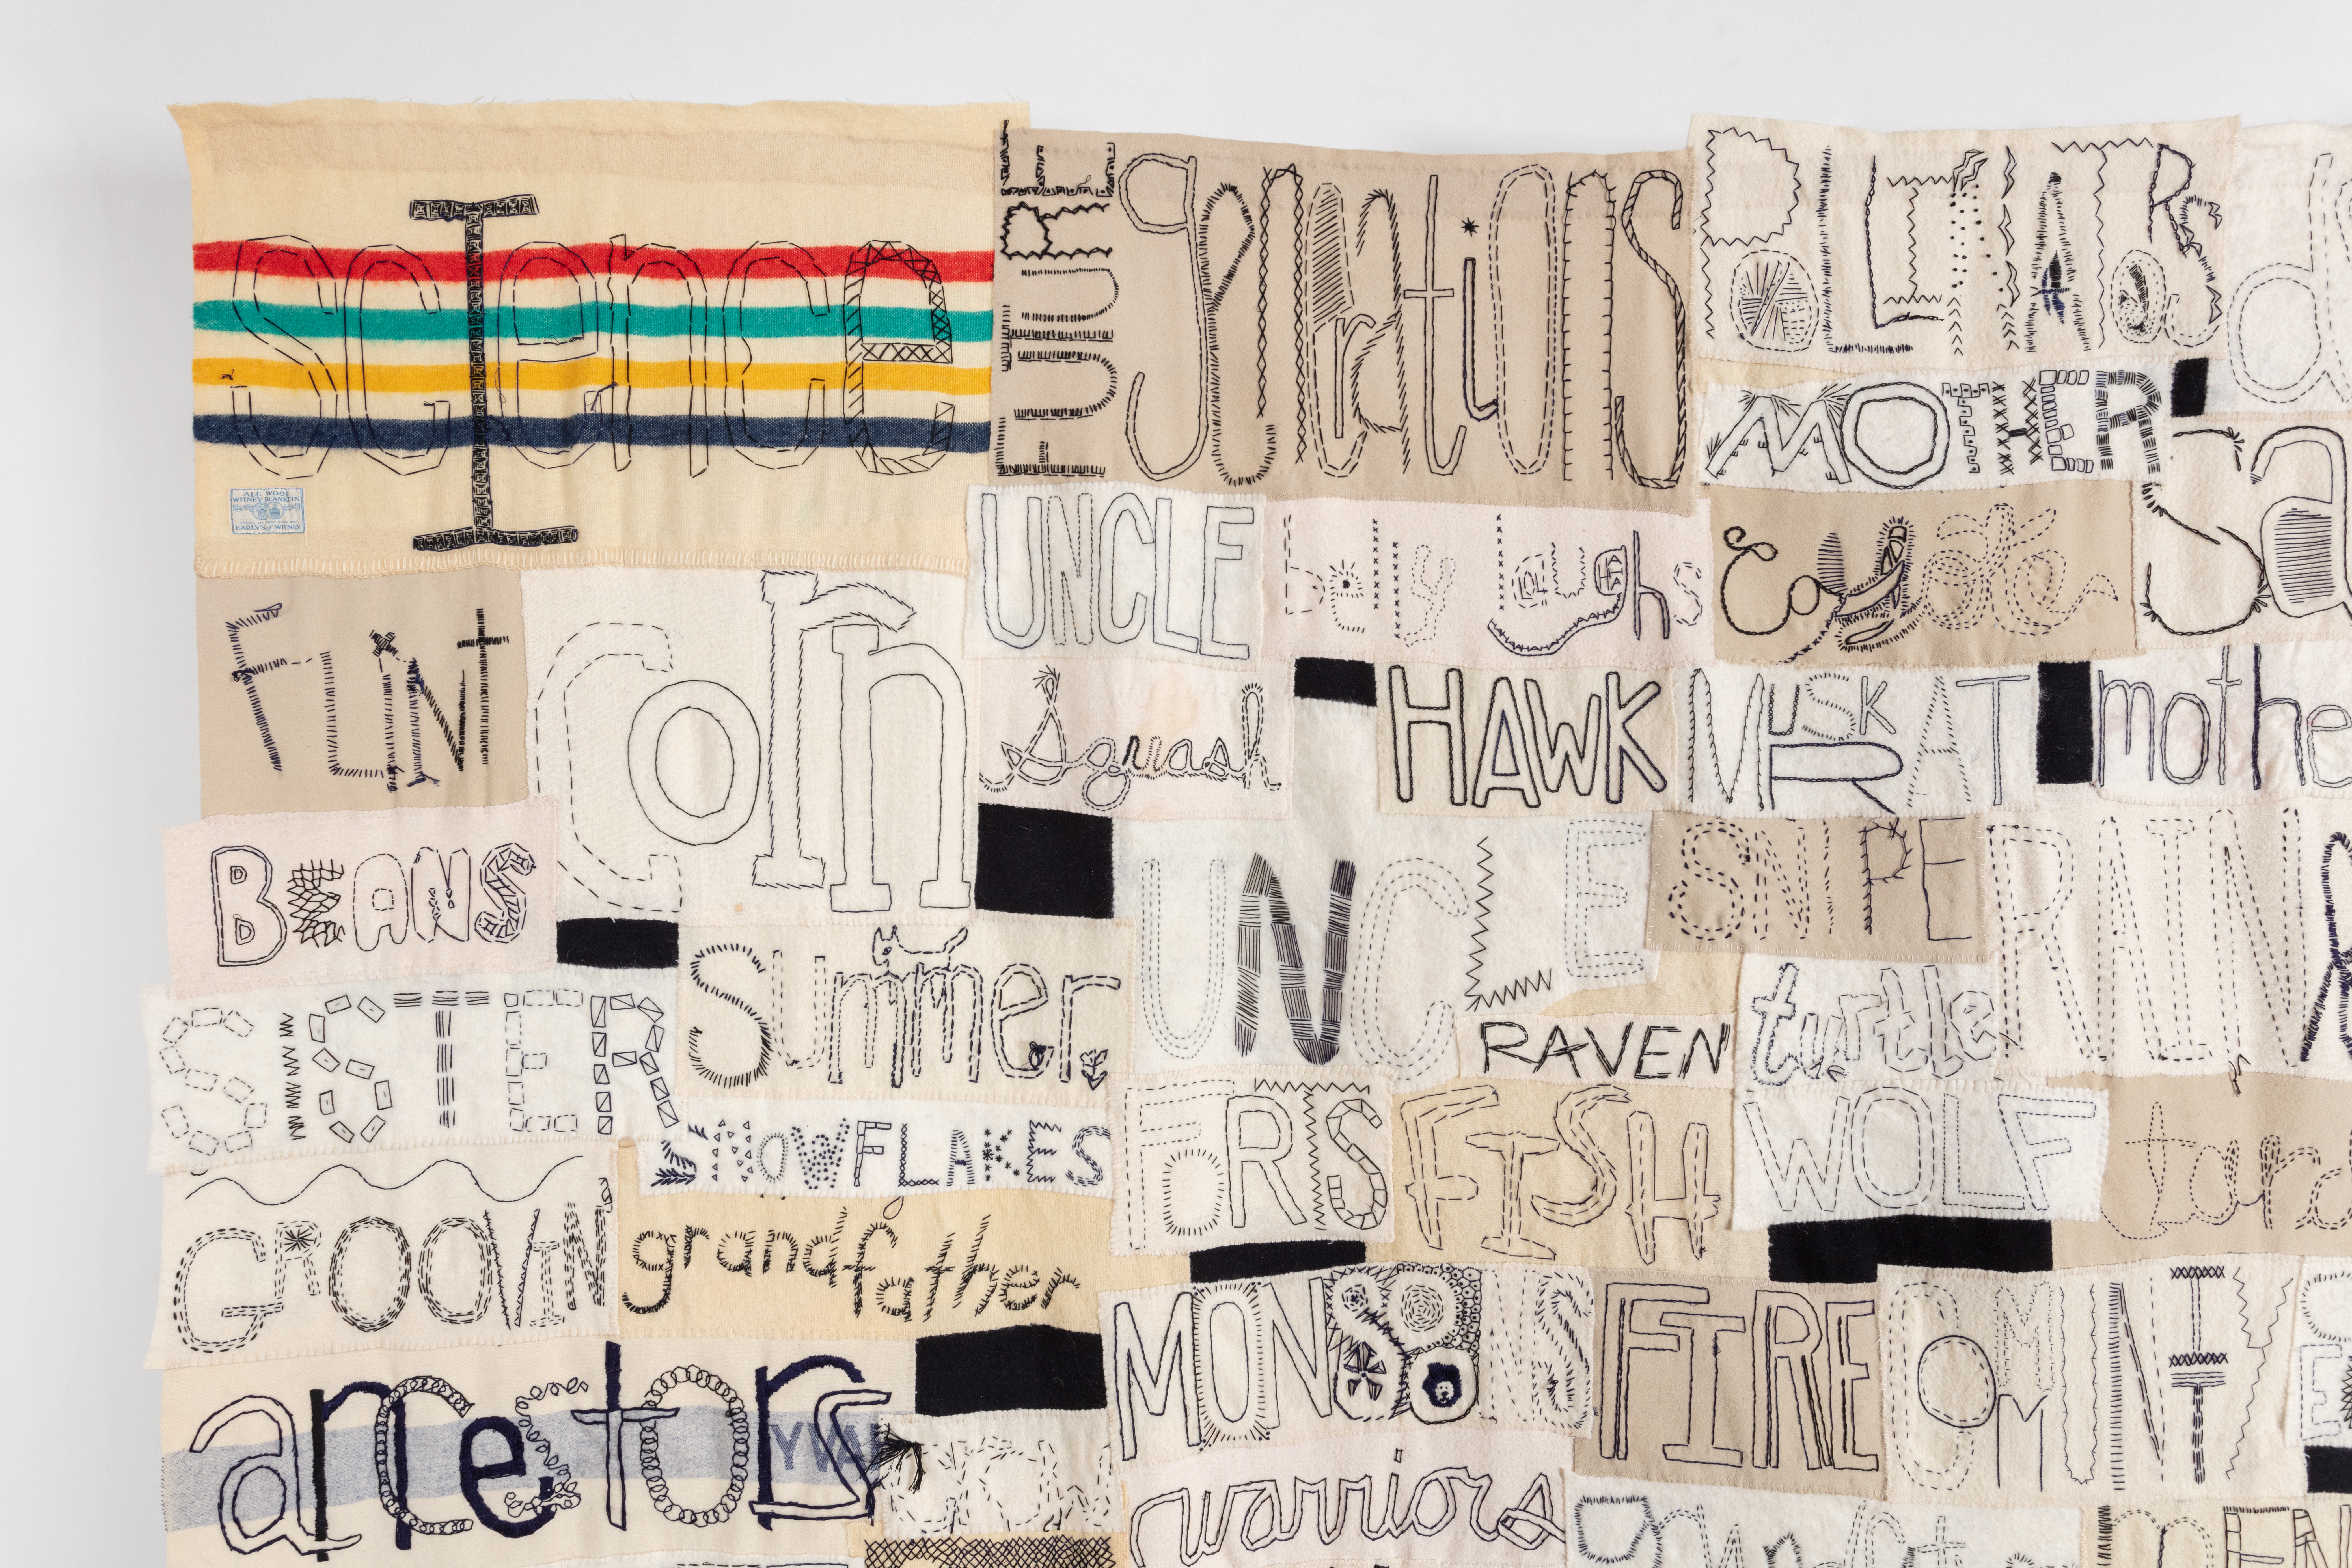 SCIENCE
ALL WOOL
WITNEY BLANKETS
EARLY'S of WITNEY
FUTURE
generations
POLLINATORS
MOTHER
UNCLE
belly laughs
Coyote
FLINT
Corn
Squash
HAWK
MUSKRAT
mothe
BEANS
UNCLE
SNIPE
RAIN
SISTER
Summer
RAVEN
turtle
SNOWFLAKES
FISH
WOLF
GROOVIN
grandfather
MONSOONS
FIRE
COMMUNITY
ancestors
warriors